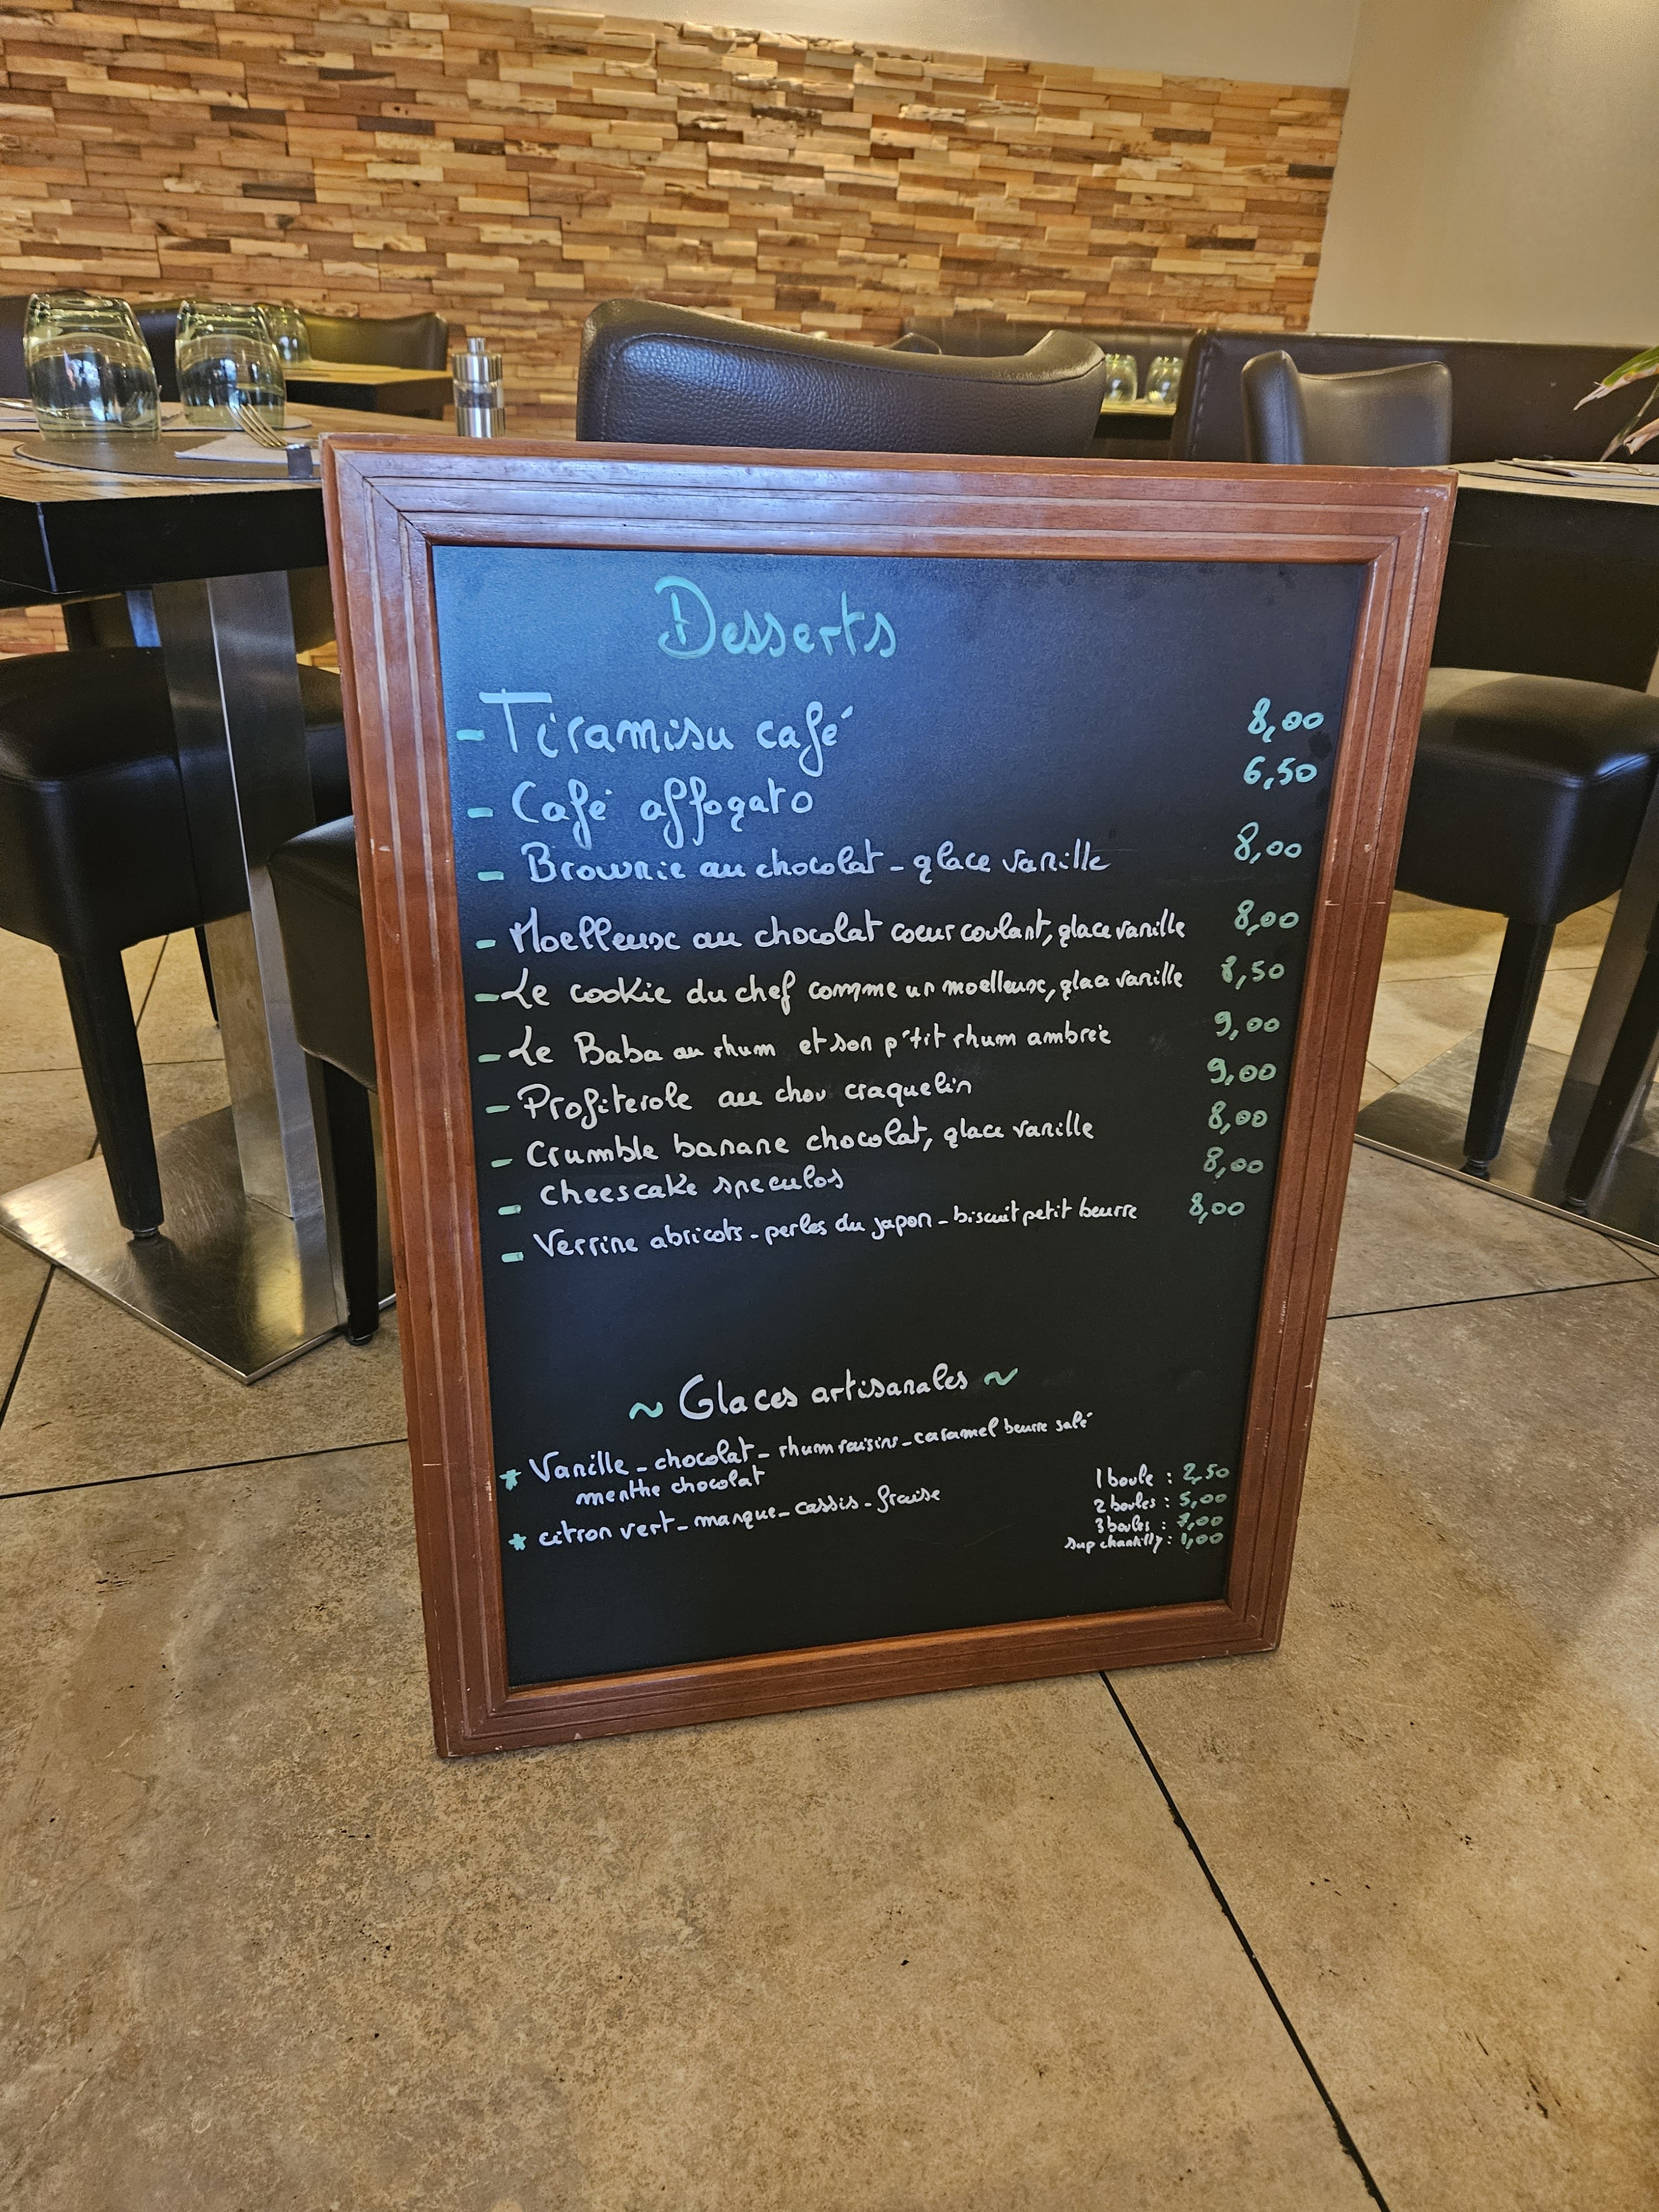 Desserts
- Tiramisu café 8,00
- Café affogato 6,50
- Brownie au chocolat - glace vanille 8,00
- Moelleux au chocolat coeur coulant, glace vanille 8,00
- Le cookie du chef comme un moelleux, glace vanille 8,50
- Le Baba au rhum et son p'tit rhum ambrée 9,00
- Profiterole au chou craquelin 9,00
- Crumble banane chocolat, glace vanille 8,00
- Cheescake speculos 8,00
- Verrine abricots - perles du japon - biscuit petit beurre 8,00
~ Glaces artisanales ~
* Vanille - chocolat - rhum raisins - caramel beurre salé
menthe chocolat
* citron vert - mangue - cassis - fraise
1 boule : 2,50
2 boules : 5,00
3 boules : 7,00
sup chantilly : 1,00